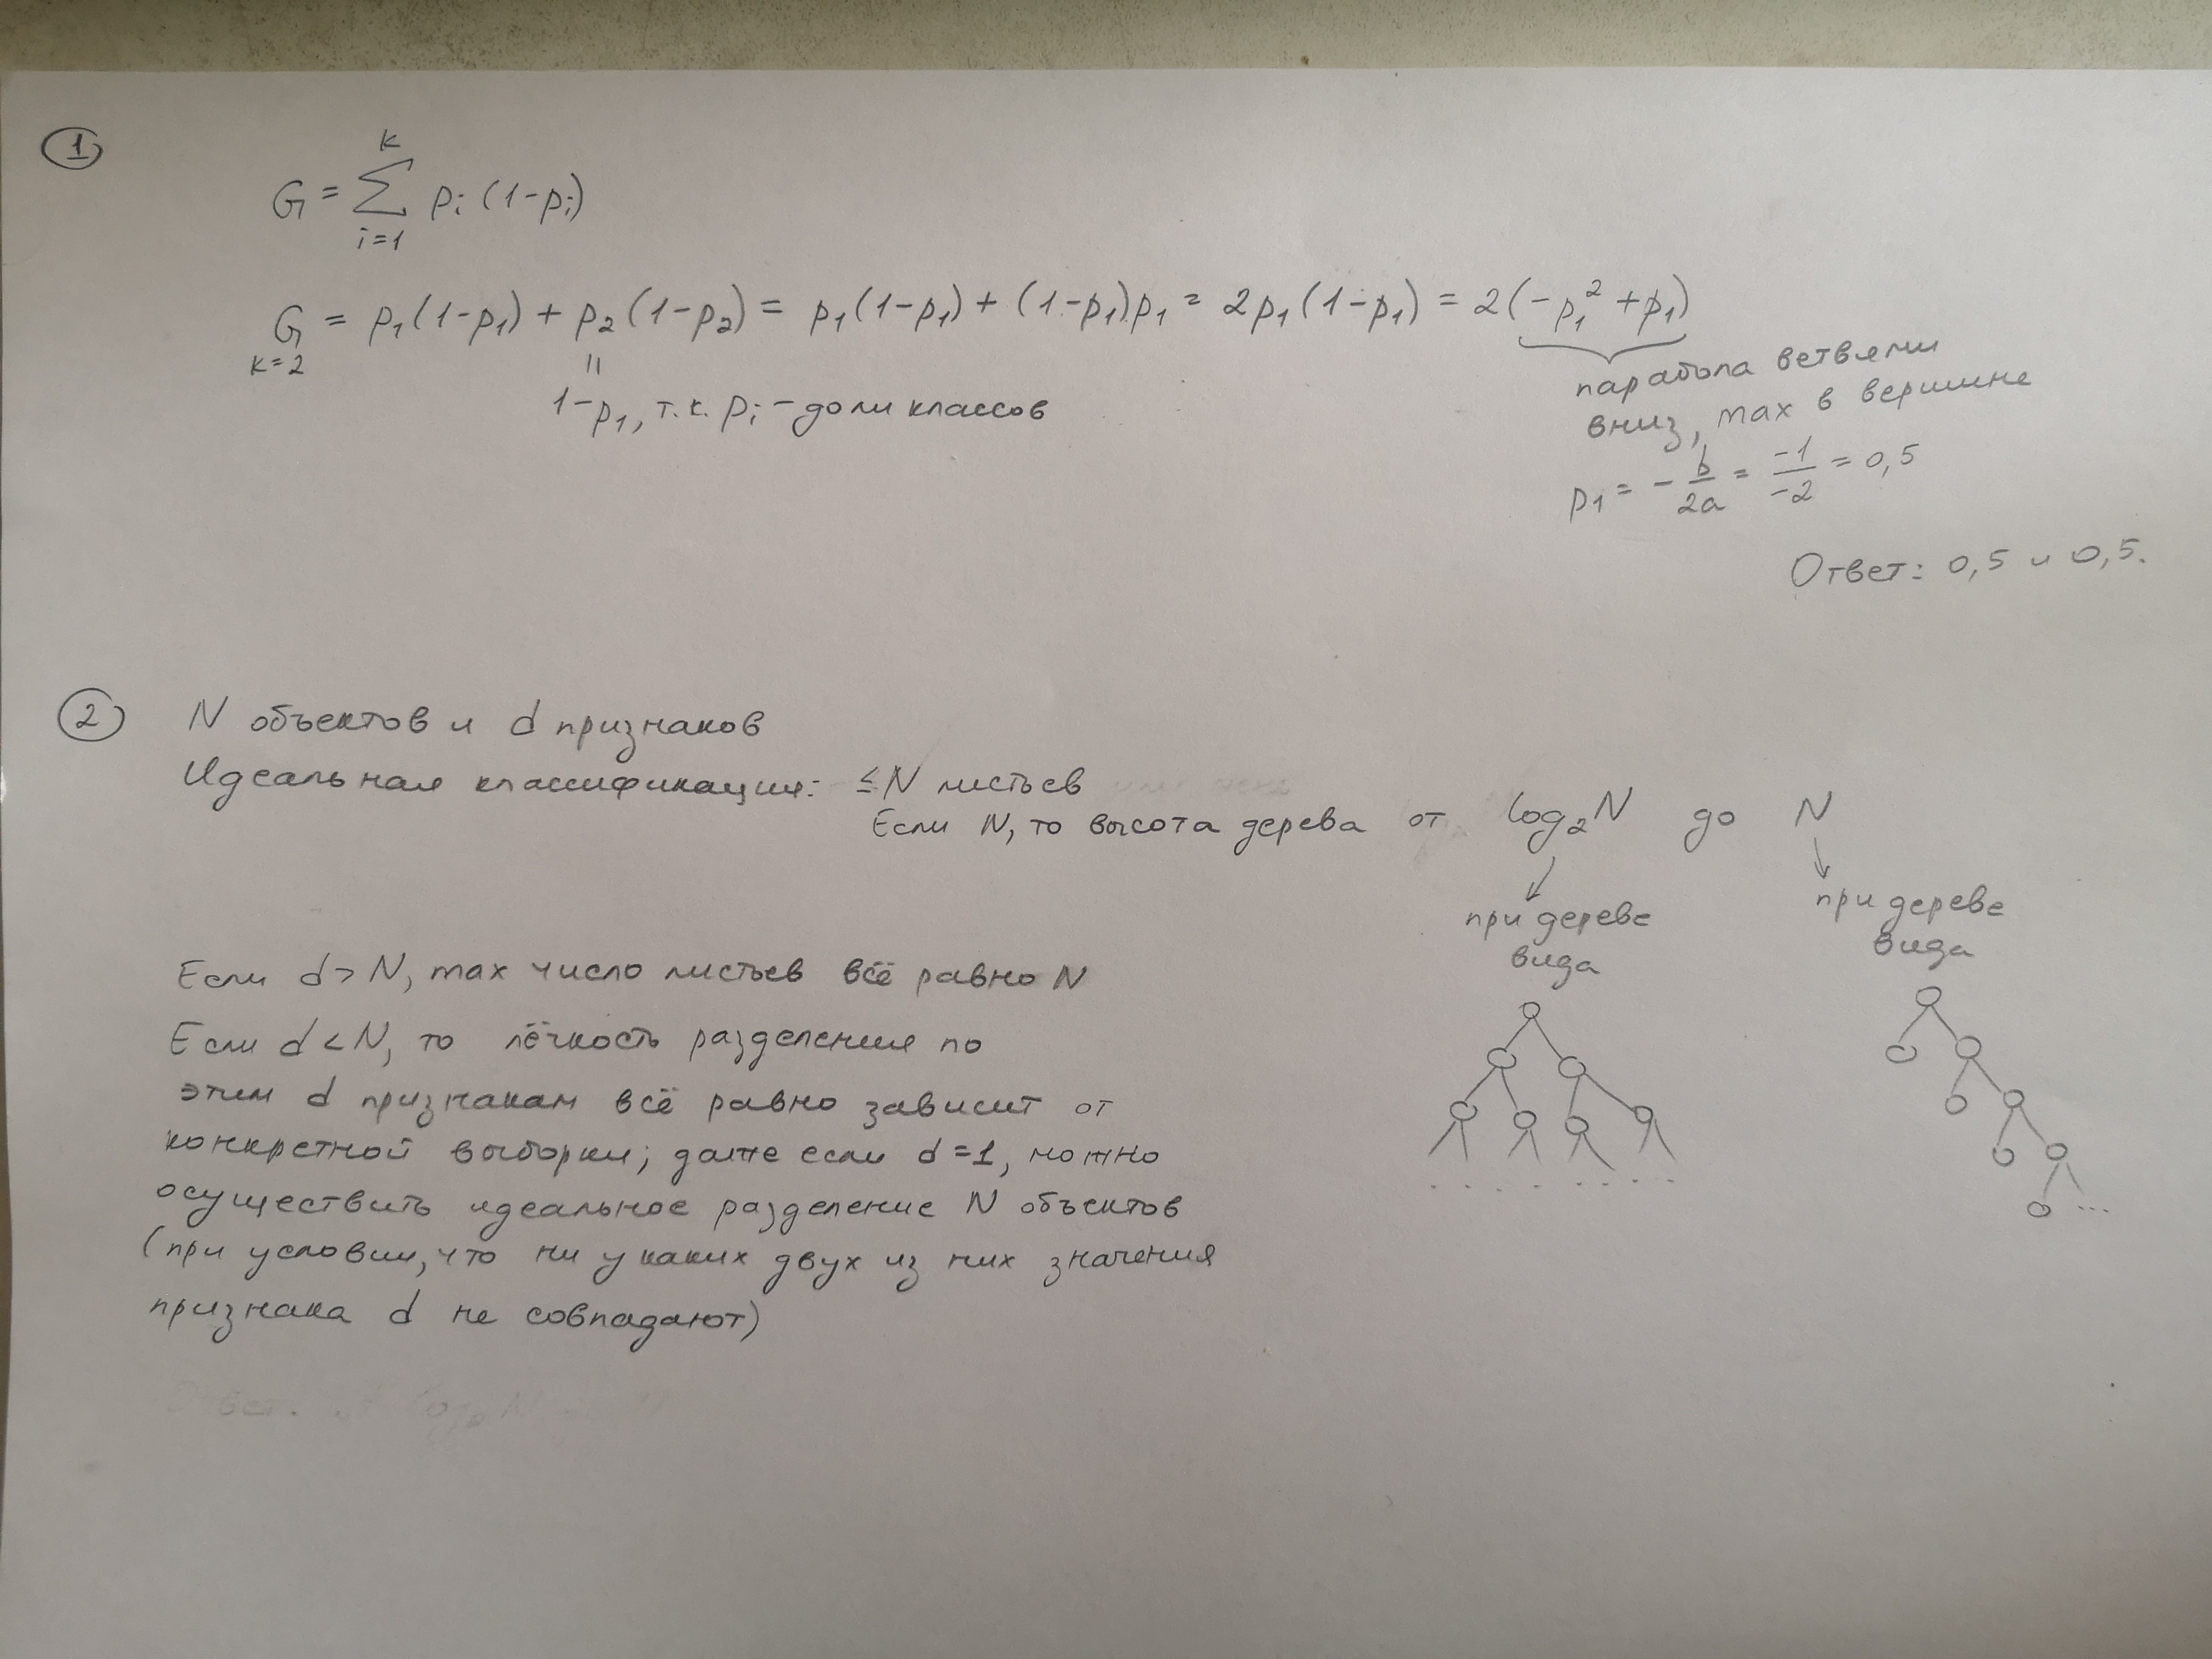 1
G = ∑ᵢ₌₁ᴷ pᵢ (1-pᵢ)
G = p₁(1-p₁) + p₂(1-p₂) = p₁(1-p₁) + (1-p₁)p₁ = 2p₁(1-p₁) = 2(-p₁² + p₁)
k=2
||
1-p₁, т.к. pᵢ - доли классов
парабола ветвями
вниз, max в вершине
p₁ = - b/2a = -1/-2 = 0,5
Ответ: 0,5 и 0,5.
2
N объектов и d признаков
Идеальная классификация: ≤N листьев
Если N, то высота дерева от log₂N до N
при дереве
вида
при дереве
вида
Если d > N, max число листьев всё равно N
Если d < N, то лёгкость разделения по
этим d признакам всё равно зависит от
конкретной выборки; даже если d=1, можно
осуществить идеальное разделение N объектов
(при условии, что ни у каких двух из них значения
признака d не совпадают)